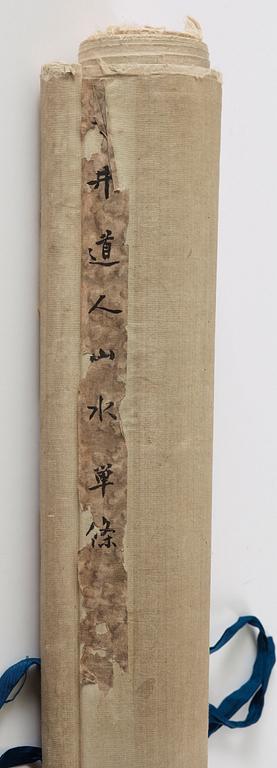 井道人山水单條